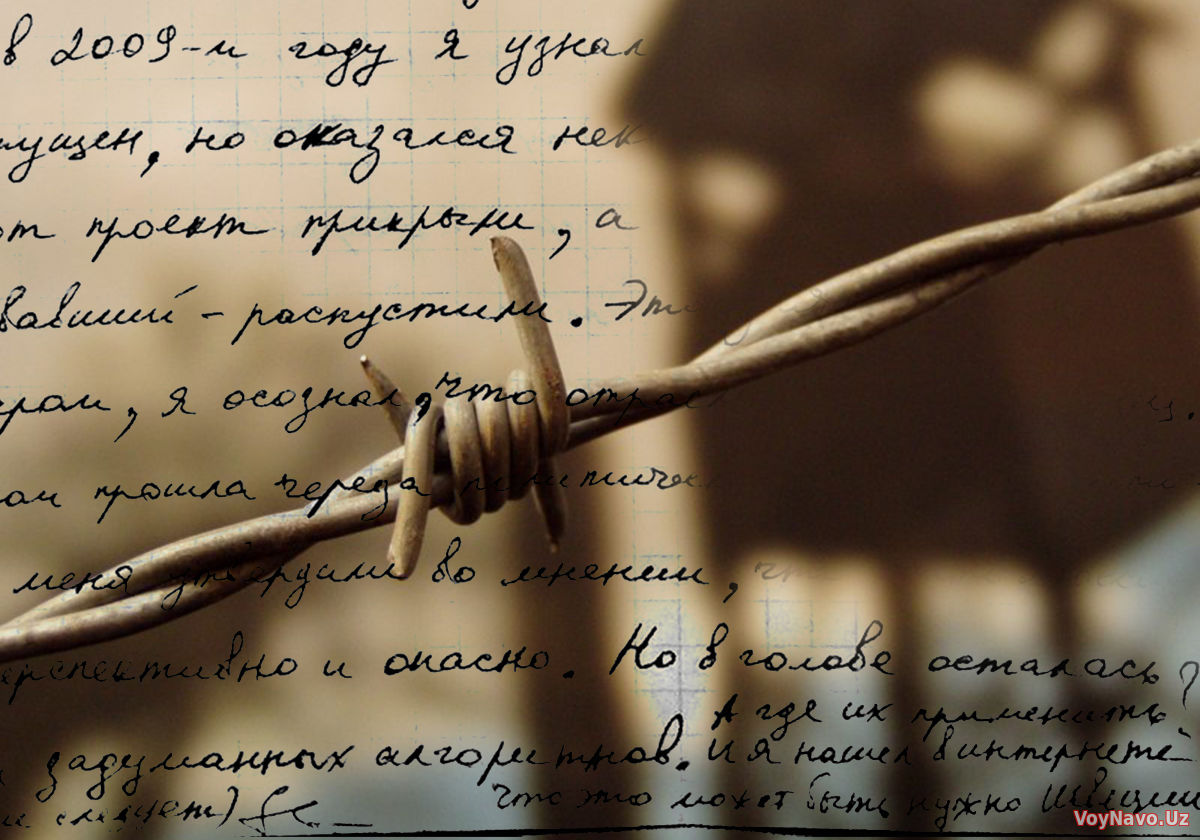 в 2009-м году я узнал
лущен, но оказался нек
от проект прикрыли, а
вавший - распустили. Это
ром, я осознал, что отрасл
ом прошла через политичес
меня утвердили во мнении, чт
ерспективно и опасно. Но в голове осталась
А где их применить?
задуманных алгоритмов. И я нашел в интернете -
что это может быть нужно Швеции
следует)
VoyNavo.Uz